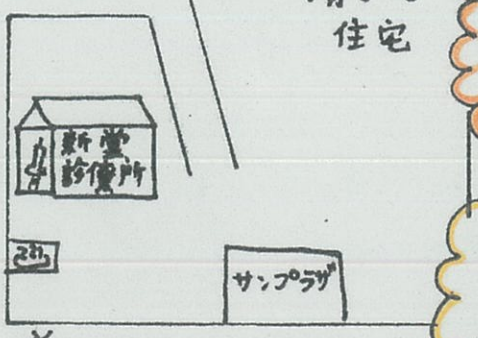 住宅
新堂
診療所
サンプラザ